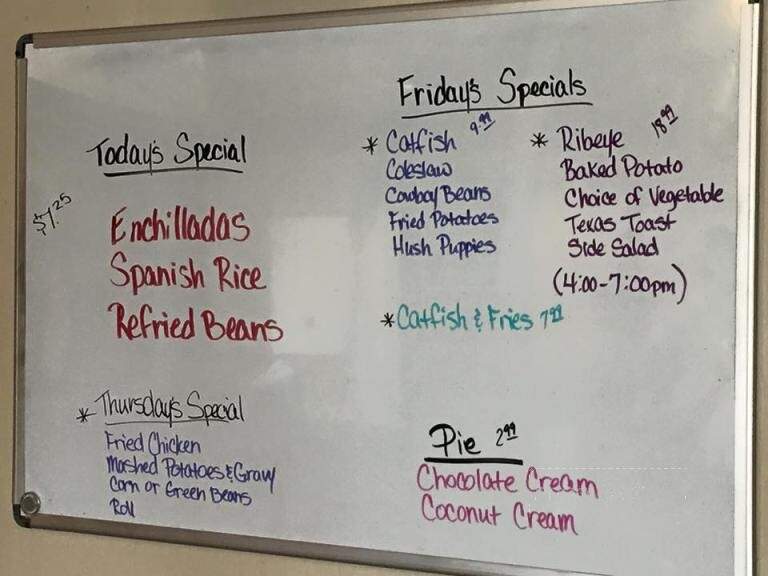 Today's Special
$7.25
Enchilladas
Spanish Rice
Refried Beans
* Thursday's Special
Fried Chicken
Mashed Potatoes & Gravy
Corn or Green Beans
Roll
Friday's Specials
* Catfish 9.99
Coleslaw
Cowboy Beans
Fried Potatoes
Hush Puppies
* Ribeye 18.99
Baked Potato
Choice of Vegetable
Texas Toast
Side Salad
(4:00-7:00pm)
* Catfish & Fries 7.99
Pie 2.99
Chocolate Cream
Coconut Cream